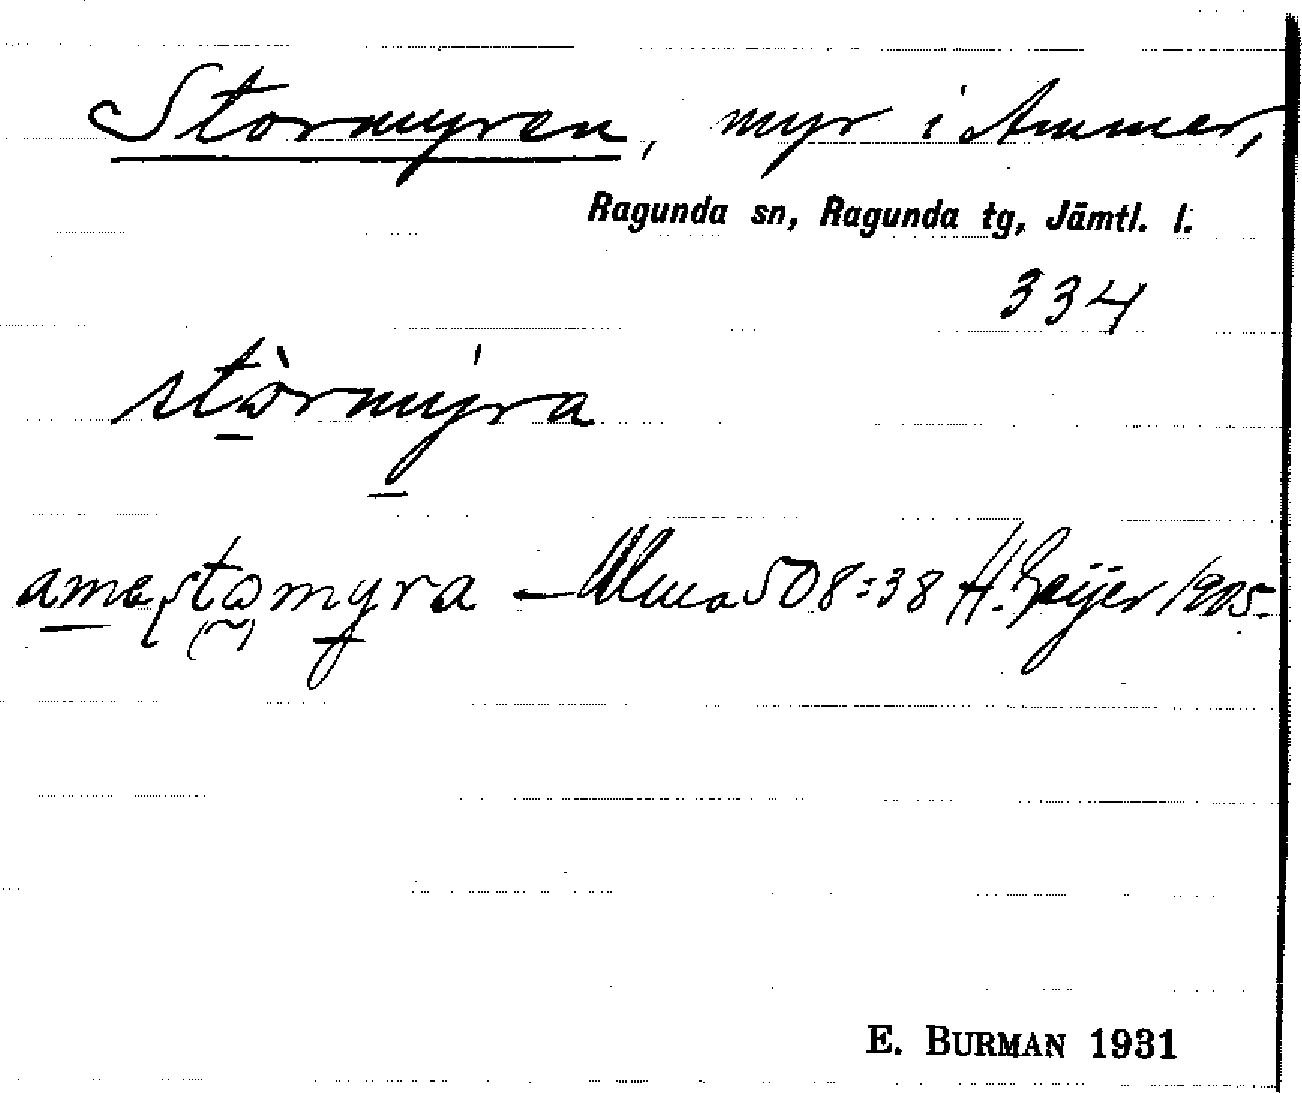 Stormyren, myr i Ammer,
Ragunda sn, Ragunda tg, Jämtl. l.
334
stòrmýra
amaʂtωmyra – Ulma 508:38 H. Geijer 1905.
E. BURMAN 1931